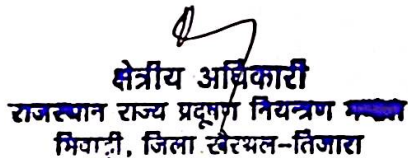 क्षेत्रीय अधिकारी
राजस्थान राज्य प्रदूषण नियन्त्रण
भिवाड़ी, जिला खैरथल-तिजारा